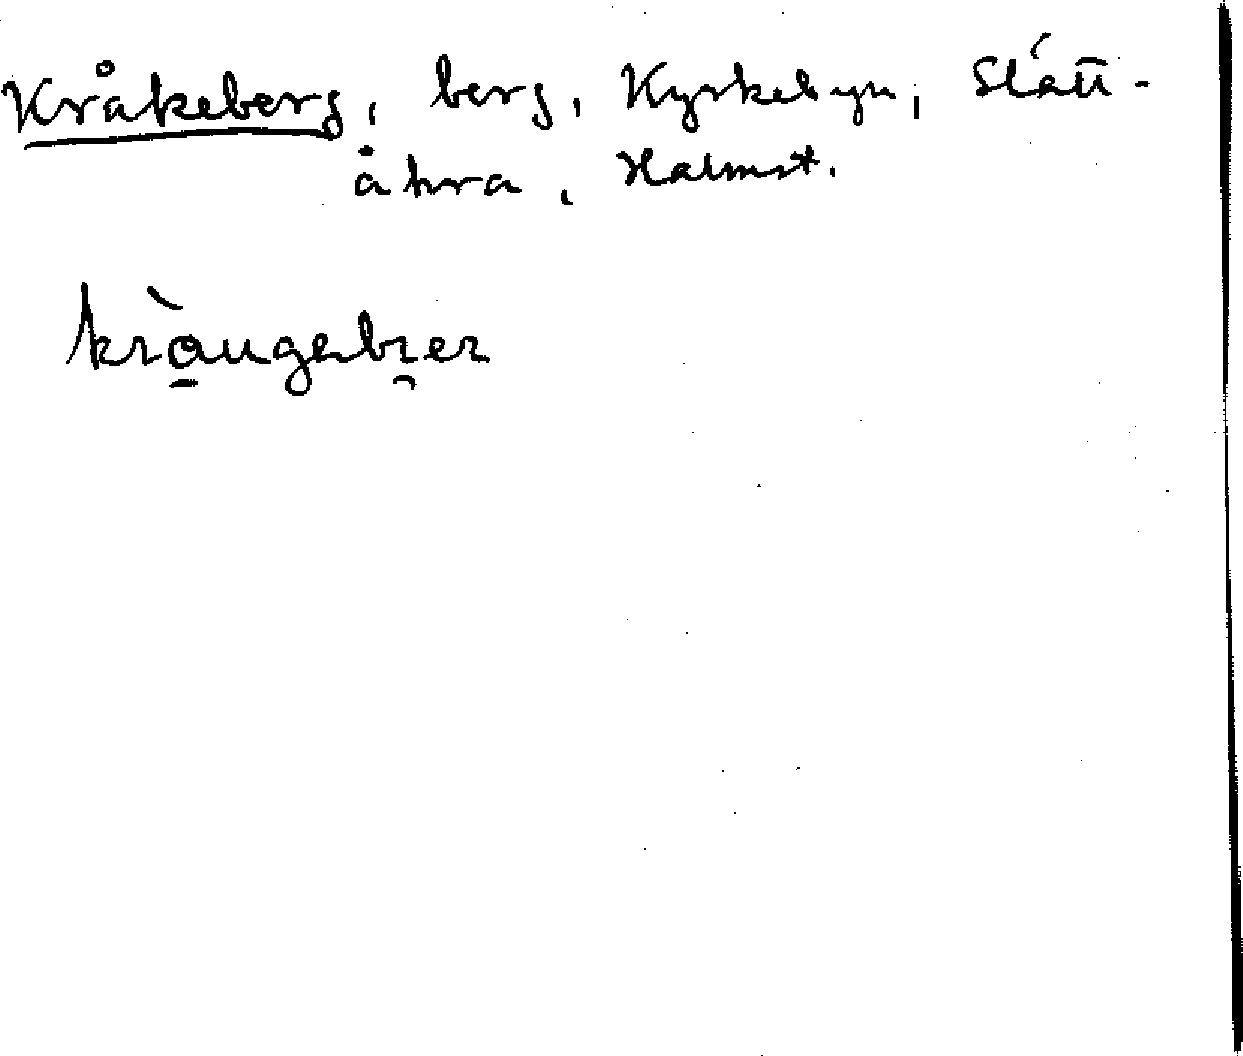 Kråkeberg, berg, Kyrkebyn, Slätt-
åkra, Halmst.
kràu̠gəbr̯er